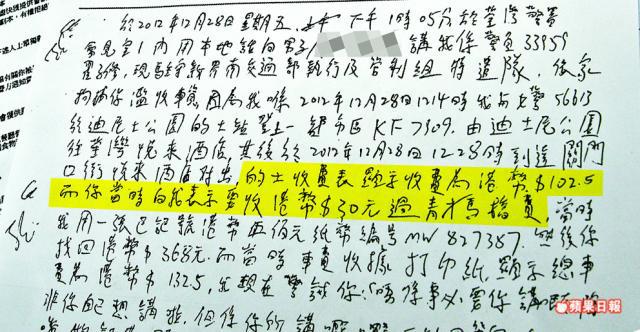 於2012年12月28日星期五，下午1時05分於荃灣警署
會見室1內用本地話向男子 講我係警員33959
現駐守新界南交通部執行及管制組特遣隊，依家
拘捕你濫收車資，因為我喺2012年12月28日1214時我与女警56613
於迪尼士公園的士站登上一部市區KF7309，由迪士尼公園
往荃灣悅來酒店，其後於2012年12月28日1228時到達關門
口街悅來酒店對出，的士收費表顯示收費為港幣$102.5
而你當時向我表示要收港幣$30元過青馬橋費，當時
我用一張已記號港幣五佰元紙幣編號MW 827387，然後你
找回港幣$368元而當時車費收據打印紙顯示總車
費為港幣$132.5，我現在警誡你，唔係事必要你講
非你自己想講啦，但係你的講
蘋果日報